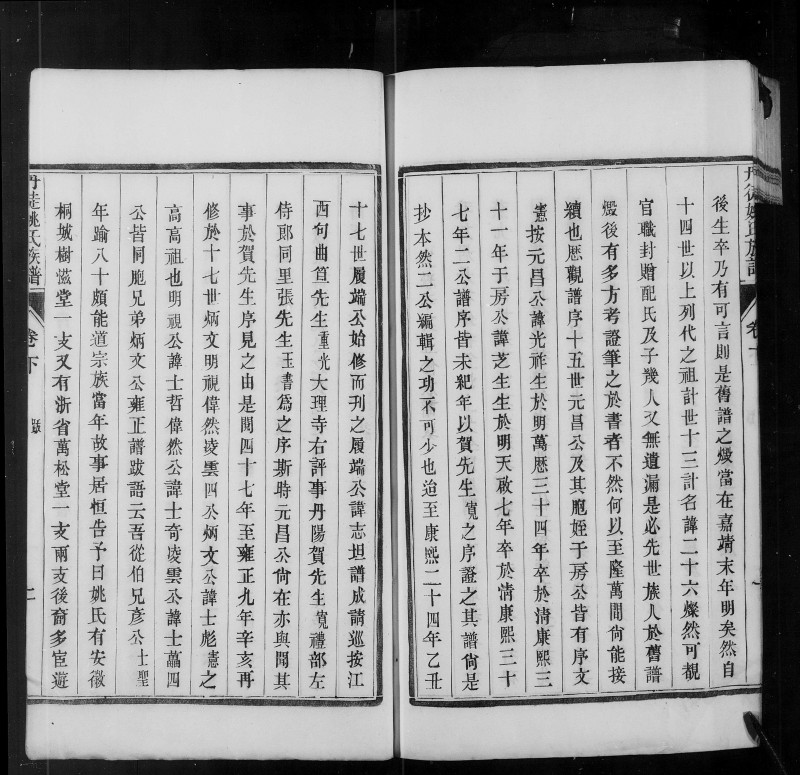 後生卒乃有可言則是舊譜之燬當在嘉靖末年明矣然自
十四世以上列代之祖計世十三計名諱二十六燦然可覩
官職封贈配氏及子幾人又無遺漏是必先世族人於舊譜
燬後有多方考證筆之於書者不然何以至隆萬間尙能接
續也歷觀譜序十五世元昌公及其胞姪于房公皆有序文
憲按元昌公諱光祚生於明萬歷三十四年卒於清康熙三
十一年于房公諱芝生生於明天啟七年卒於清康熙三十
七年二公譜序皆未紀年以賀先生寬之序證之其譜尙是
抄本然二公編輯之功不可少也迨至康熙二十四年乙丑
十七世履端公始修而刊之履端公諱志坦譜成請巡按江
西句曲笪先生重光大理寺右評事丹陽賀先生寬禮部左
侍郎同里張先生玉書爲之序斯時元昌公尙在亦與聞其
事於賀先生序見之由是閱四十七年至雍正九年辛亥再
修於十七世炳文明視偉然凌雲四公炳文公諱士彪憲之
高高祖也明視公諱士哲偉然公諱士奇凌雲公諱士藟四
公皆同胞兄弟炳文公雍正譜跋語云吾從伯兄彥公士聖
年踰八十頗能道宗族當年故事居恒告予曰姚氏有安徽
桐城樹滋堂一支又有浙省萬松堂一支兩支後裔多宦遊
丹徒姚氏族譜
卷下
二